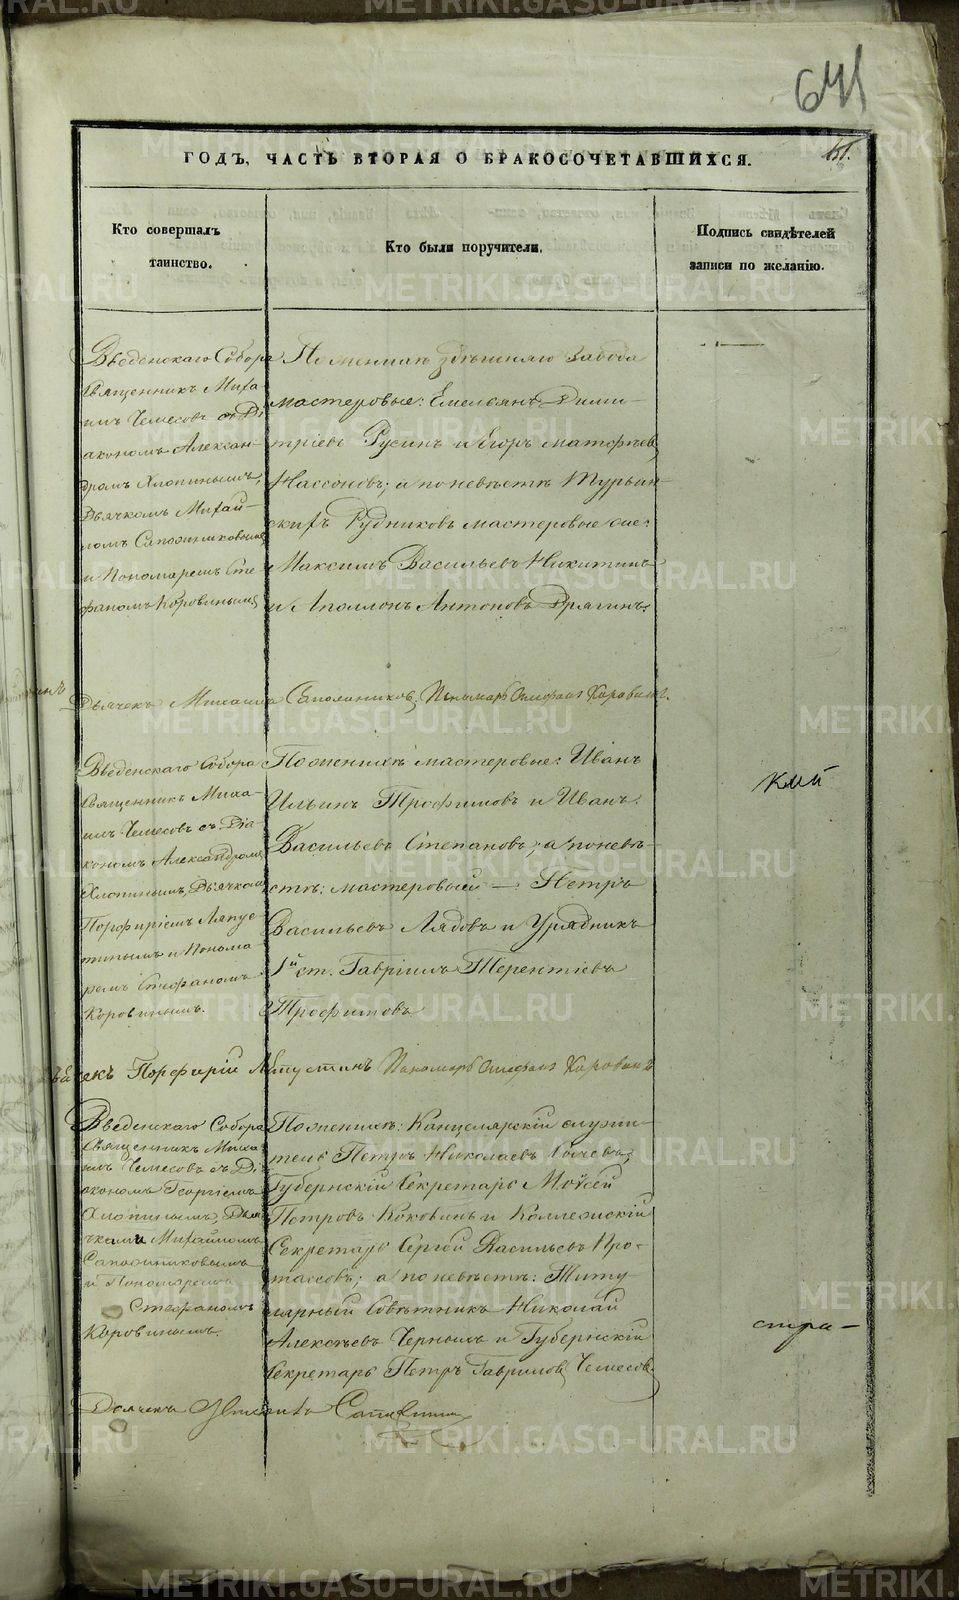 641
ГОДЪ, ЧАСТЬ ВТОРАЯ О БРАКОСОЧЕТАВШИХСЯ.
Кто совершалъ
таинство.
Кто были поручители.
Подпись свидѣтелей
записи по желанію.
Введенскаго Собора
Священникъ Миха-
илъ Чемесовъ съ Ді-
акономъ Алексан-
дромъ Хлопинымъ,
Дьячкомъ Михай-
ломъ Сапожниковымъ
и Пономаремъ Сте
фаномъ Коровинымъ
По женихѣ здѣшняго завода
мастеровые: Емельянъ Дими-
тріевъ Русинъ и Егоръ Матфѣевъ
Нассоновъ; а по невѣстѣ Турьин-
скихъ Рудниковъ мастеровые же:
Максимъ Васильевъ Никитинъ
и Аполлонъ Антоновъ Дрягинъ.
Дьячекъ Михаилъ Сапожниковъ, Пономарь Стефанъ Коровинъ.
Введенскаго Собора
Священникъ Миха-
илъ Чемесовъ съ Діа-
кономъ Александромъ
Хлопинымъ, Дьячкомъ
Порфиріемъ Ляпус-
тинымъ и Понома-
ремъ Стефаномъ
Коровинымъ.
По женихѣ мастеровые: Иванъ
Ильинъ Трофимовъ и Иванъ
Васильевъ Степановъ; а по невѣ-
стѣ: мастеровый — Петръ
Васильевъ Лядовъ и Урядникъ
1й ст. Гавріилъ Терентіевъ
Трофимовъ
кій
Дьячекъ Порфирій Ляпустинъ Пономарь Стефанъ Коровинъ
Введенскаго Собора
Священникъ Миха
илъ Чемесовъ съ Ді
акономъ Георгіемъ
Хлопинымъ, Дья
чкомъ Михайломъ
Сапожниковымъ
и Пономаремъ
Стефаномъ
Коровинымъ.
По женихѣ: Канцелярскій служи-
тель Петръ Николаевъ
Губернскій Секретарь Мойсей
Петровъ Коковинъ и Коллежскій
Секретарь Сергѣй Васильевъ Про-
тассовъ; а по невѣстѣ: Титу
лярный Совѣтникъ Николай
Алексѣевъ Черныхъ и Губернскій
Секретарь Петръ Гавриловъ Чемесовъ
стра-
Дьячекъ
METRIKI.GASO-URAL.RU